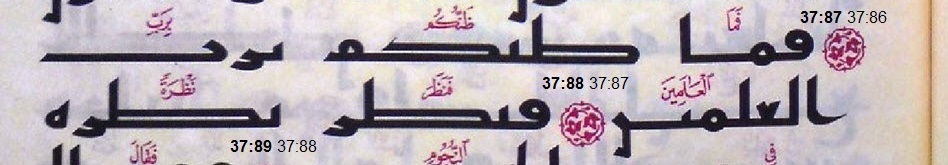 37:87 37:86
فَمَا ظَنُّكُم بِرَبِّ
فما ظنكم برب
37:88 37:87
ٱلْعَالَمِينَ فَنَظَرَ نَظْرَةً
العلمين فنظر نظره
37:89 37:88
فِي ٱلنُّجُومِ فَقَالَ